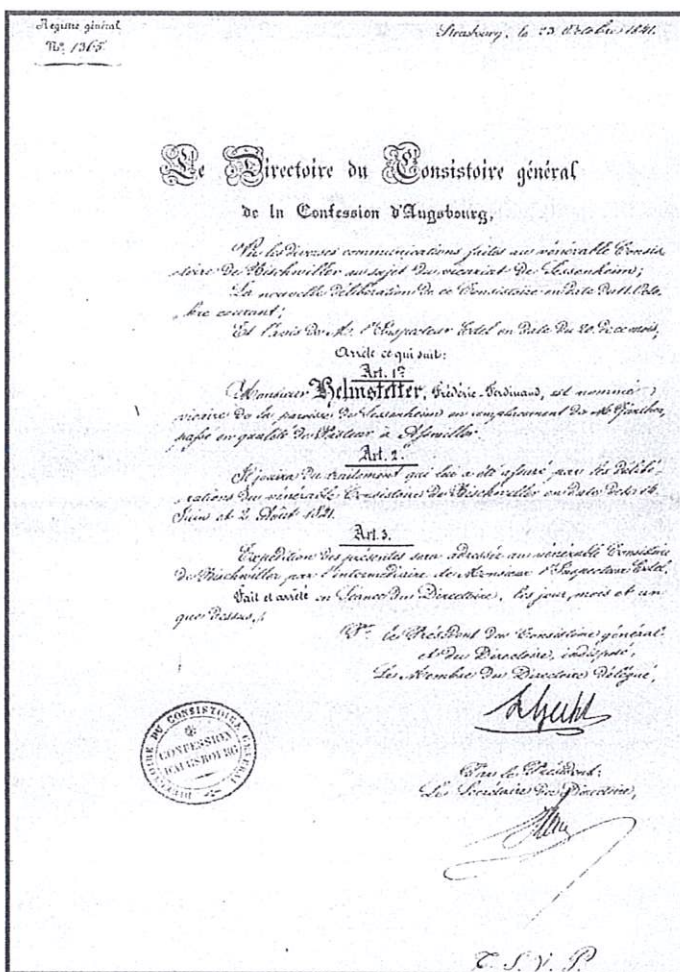 Registre général
Nº 1365
Strasbourg, le 23 Octobre 1841.
Le Directoire du Consistoire général
de la Confession d'Augsbourg,
Vu les diverses communications faites au vénérable Consis-
toire de Bischwiller au sujet du vicariat de Sessenheim;
La nouvelle délibération de ce Consistoire en date du 11 Octo-
bre courant;
Et l'avis de Mr. l'Inspecteur Ertel en date du 20 de ce mois,
Arrête ce qui suit:
Art. 1er
Monsieur Helmstetter, Frédéric-Ferdinand, est nommé
vicaire de la paroisse de Sessenheim en remplacement de Mr
passé en qualité de Pasteur à
Art. 2.
Il jouira du traitement qui lui a été assuré par les délibé-
rations du vénérable Consistoire de Bischwiller en date des
Juin et 2 Août 1841.
Art. 3.
Expédition des présentes sera adressée au vénérable Consistoire
de Bischwiller par l'intermédiaire de Monsieur l'Inspecteur Ertel.
Fait et arrêté en Séance du Directoire, les jour, mois et an
que dessus.
Pr. le Président du Consistoire général
et du Directoire, indisposé,
Le Membre du Directoire délégué,
DIRECTOIRE DU CONSISTOIRE GÉNÉRAL
CONFESSION
D'AUGSBOURG
Par le Président:
Le Secrétaire du Directoire,
T. S. V. P.